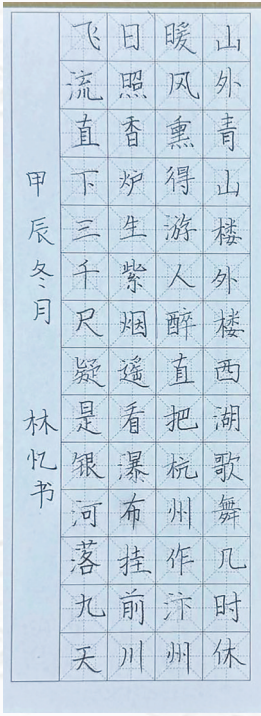 山外青山楼外楼西湖歌舞几时休
暖风熏得游人醉直把杭州作汴州
日照香炉生紫烟遥看瀑布挂前川
飞流直下三千尺疑是银河落九天
甲辰冬月 林忆书